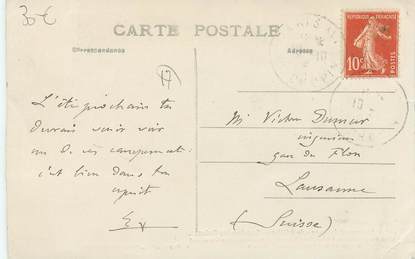 30€
CARTE POSTALE
Correspondance
Adresse
RÉPUBLIQUE FRANÇAISE
10c
POSTES
17
L'été prochain tu
devrais venir voir
un de ces campements:
c'est bien dans ton
esprit
Mr Victor Dumur
ingénieur
gare du Flon
Lausanne
(Suisse)